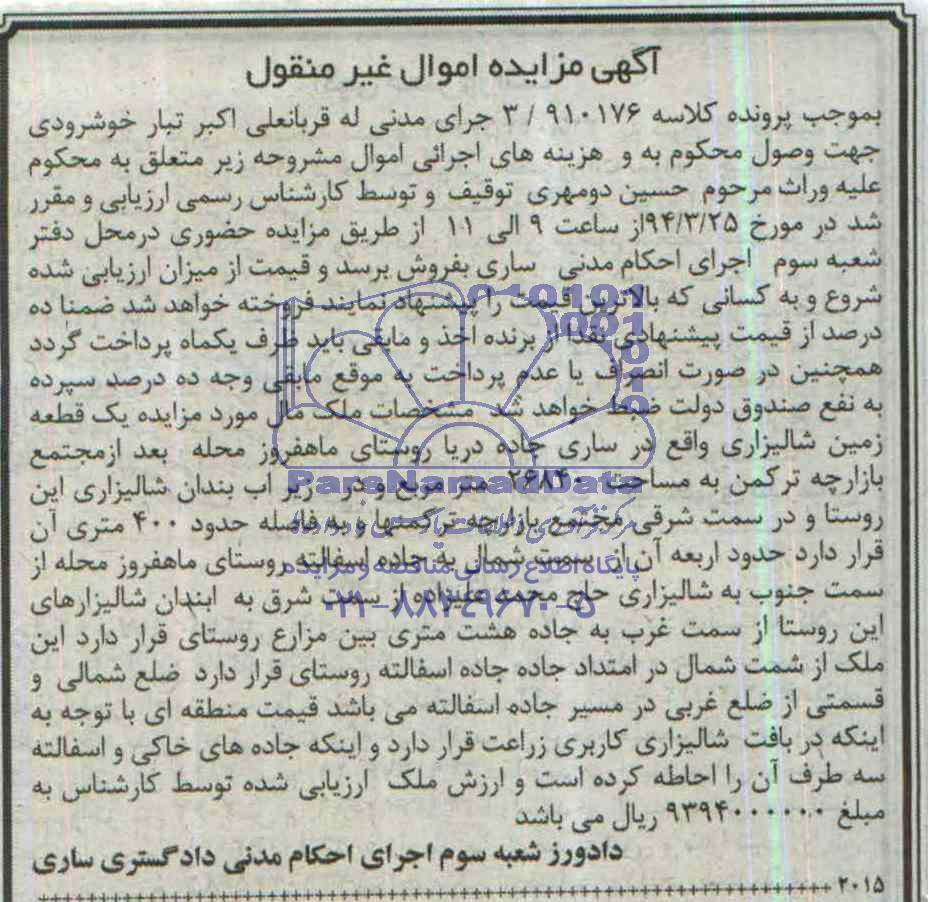 آگهی مزایده اموال غیر منقول
بموجب پرونده کلاسه ۹۱۰۱۷۶ / ۳ جرای مدنی له قربانعلی اکبر تبار خوشرودی
جهت وصول محکوم به و هزینه های اجرائی اموال مشروحه زیر متعلق به محکوم
علیه وراث مرحوم حسین دومهری توقیف و توسط کارشناس رسمی ارزیابی و مقرر
شد در مورخ ۹۴/۳/۲۵از ساعت ۹ الی ۱۱ از طریق مزایده حضوری درمحل دفتر
شعبه سوم اجرای احکام مدنی ساری بفروش برسد و قیمت از میزان ارزیابی شده
شروع و به کسانی که بالاترین قیمت را پیشنهاد نمایند فروخته خواهد شد ضمنا ده
درصد از قیمت پیشنهادی نقدا از برنده اخذ و مابقی باید ظرف یکماه پرداخت گردد
همچنین در صورت انصراف یا عدم پرداخت به موقع مابقی وجه ده درصد سپرده
به نفع صندوق دولت ضبط خواهد شد مشخصات ملک مال مورد مزایده یک قطعه
زمین شالیزاری واقع در ساری جاده دریا روستای ماهفروز محله بعد ازمجتمع
بازارچه ترکمن به مساحت ۲۶۸۴۰ متر مربع و در زیر اب بندان شالیزاری این
ParsNamadData
روستا و در سمت شرقی مجتمع بازارچه ترکمنها و به فاصله حدود ۴۰۰ متری آن
قرار دارد حدود اربعه آن از سمت شمال به جاده اسفالته روستای ماهفروز محله از
پایگاه اطلاع رسانی مناقصه و مزایده
سمت جنوب به شالیزاری حاج محمد علیزاده از سمت شرق به ابندان شالیزارهای
۰۲۱-۸۸۳۴۹۶۷۰-۵
این روستا از سمت غرب به جاده هشت متری بین مزارع روستای قرار دارد این
ملک از شمت شمال در امتداد جاده جاده اسفالته روستای قرار دارد ضلع شمالی و
قسمتی از ضلع غربی در مسیر جاده اسفالته می باشد قیمت منطقه ای با توجه به
اینکه در بافت شالیزاری کاربری زراعت قرار دارد و اینکه جاده های خاکی و اسفالته
سه طرف آن را احاطه کرده است و ارزش ملک ارزیابی شده توسط کارشناس به
مبلغ ۹۳۹۴۰۰۰۰۰۰ ریال می باشد
دادورز شعبه سوم اجرای احکام مدنی دادگستری ساری
۲۰۱۵